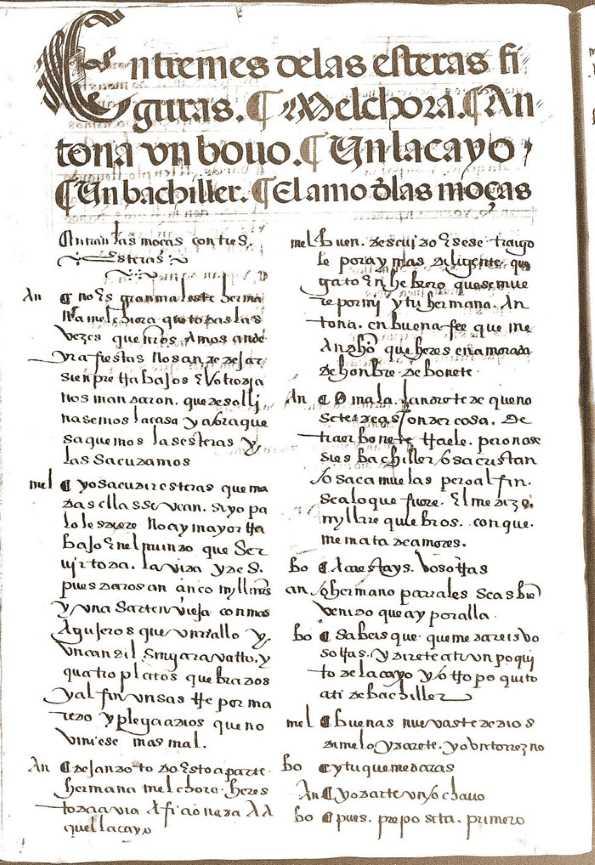 Entremes delas esteras fi⸗
guras. ¶ Melchora. ¶ An⸗
tona vn bouo. ¶ Un lacayo,
¶ Un bachiller. ¶ El amo dlas moças
Entran las moças con tres
esteras
An ¶ no es gran mal este herma
na melchora que todas las
vezes que nros Amos ande
yr a fiestas nos an de dexar
sienpre trabajos El otro dia
nos mandaron. que desolli
nasemos la casa y aora que
saquemos las esteras y
las sacudamos
mel ¶ yo sacudir esteras que ma
das ellas se vean. si yo pa
lo les diere no ay mayor tra
bajo en el mundo que ser
uir toda. la vida y des
pues daros an cinco myll mrs
y vna sarten vieja con mas
Agujeros que vn rallo y
vn candil sin garavatto. y
quatro platos quebrados
y al fin vn sastre por ma
rido y plega a dios que no
viniese mas mal.
An ¶ dexando todo esto aparte
hermana melchora. heres
todavia Aficionada Al
quel lacayo
mel ¶ buen. descuydo es ese traygo
le por ay mas diligente que
gato en hebrero que se mue
re por mi y tu hermana. An
tona. en buena fee que me
An dho que heres enamorada
de honbre de bonete
An ¶ O mala. landre te de que no
se te des[c]onde cosa. De
traer bonete traele. pero no se
si es bachiller / o sacristan
/o saca muelas pero al fin.
sea lo que fuere. El me dize
myll requiebros. con que.
me mata de amores.
bo ¶ Aca estays. vosotras
an. /o hermano parrales seas bie
venido que ay por alla.
bo ¶ Sabeis que. que me dareis vo
sotras. y dire te a ti vn poqui
to de lacayo y a otra poquito
a ti de bachiller
mel ¶ buenas nuevas te de dios
dimelo y darete. yo vn torrezno
bo ¶ y tu que me daras
An ¶ yo darte vn /ochauo
bo ¶ pues. preposita. primero